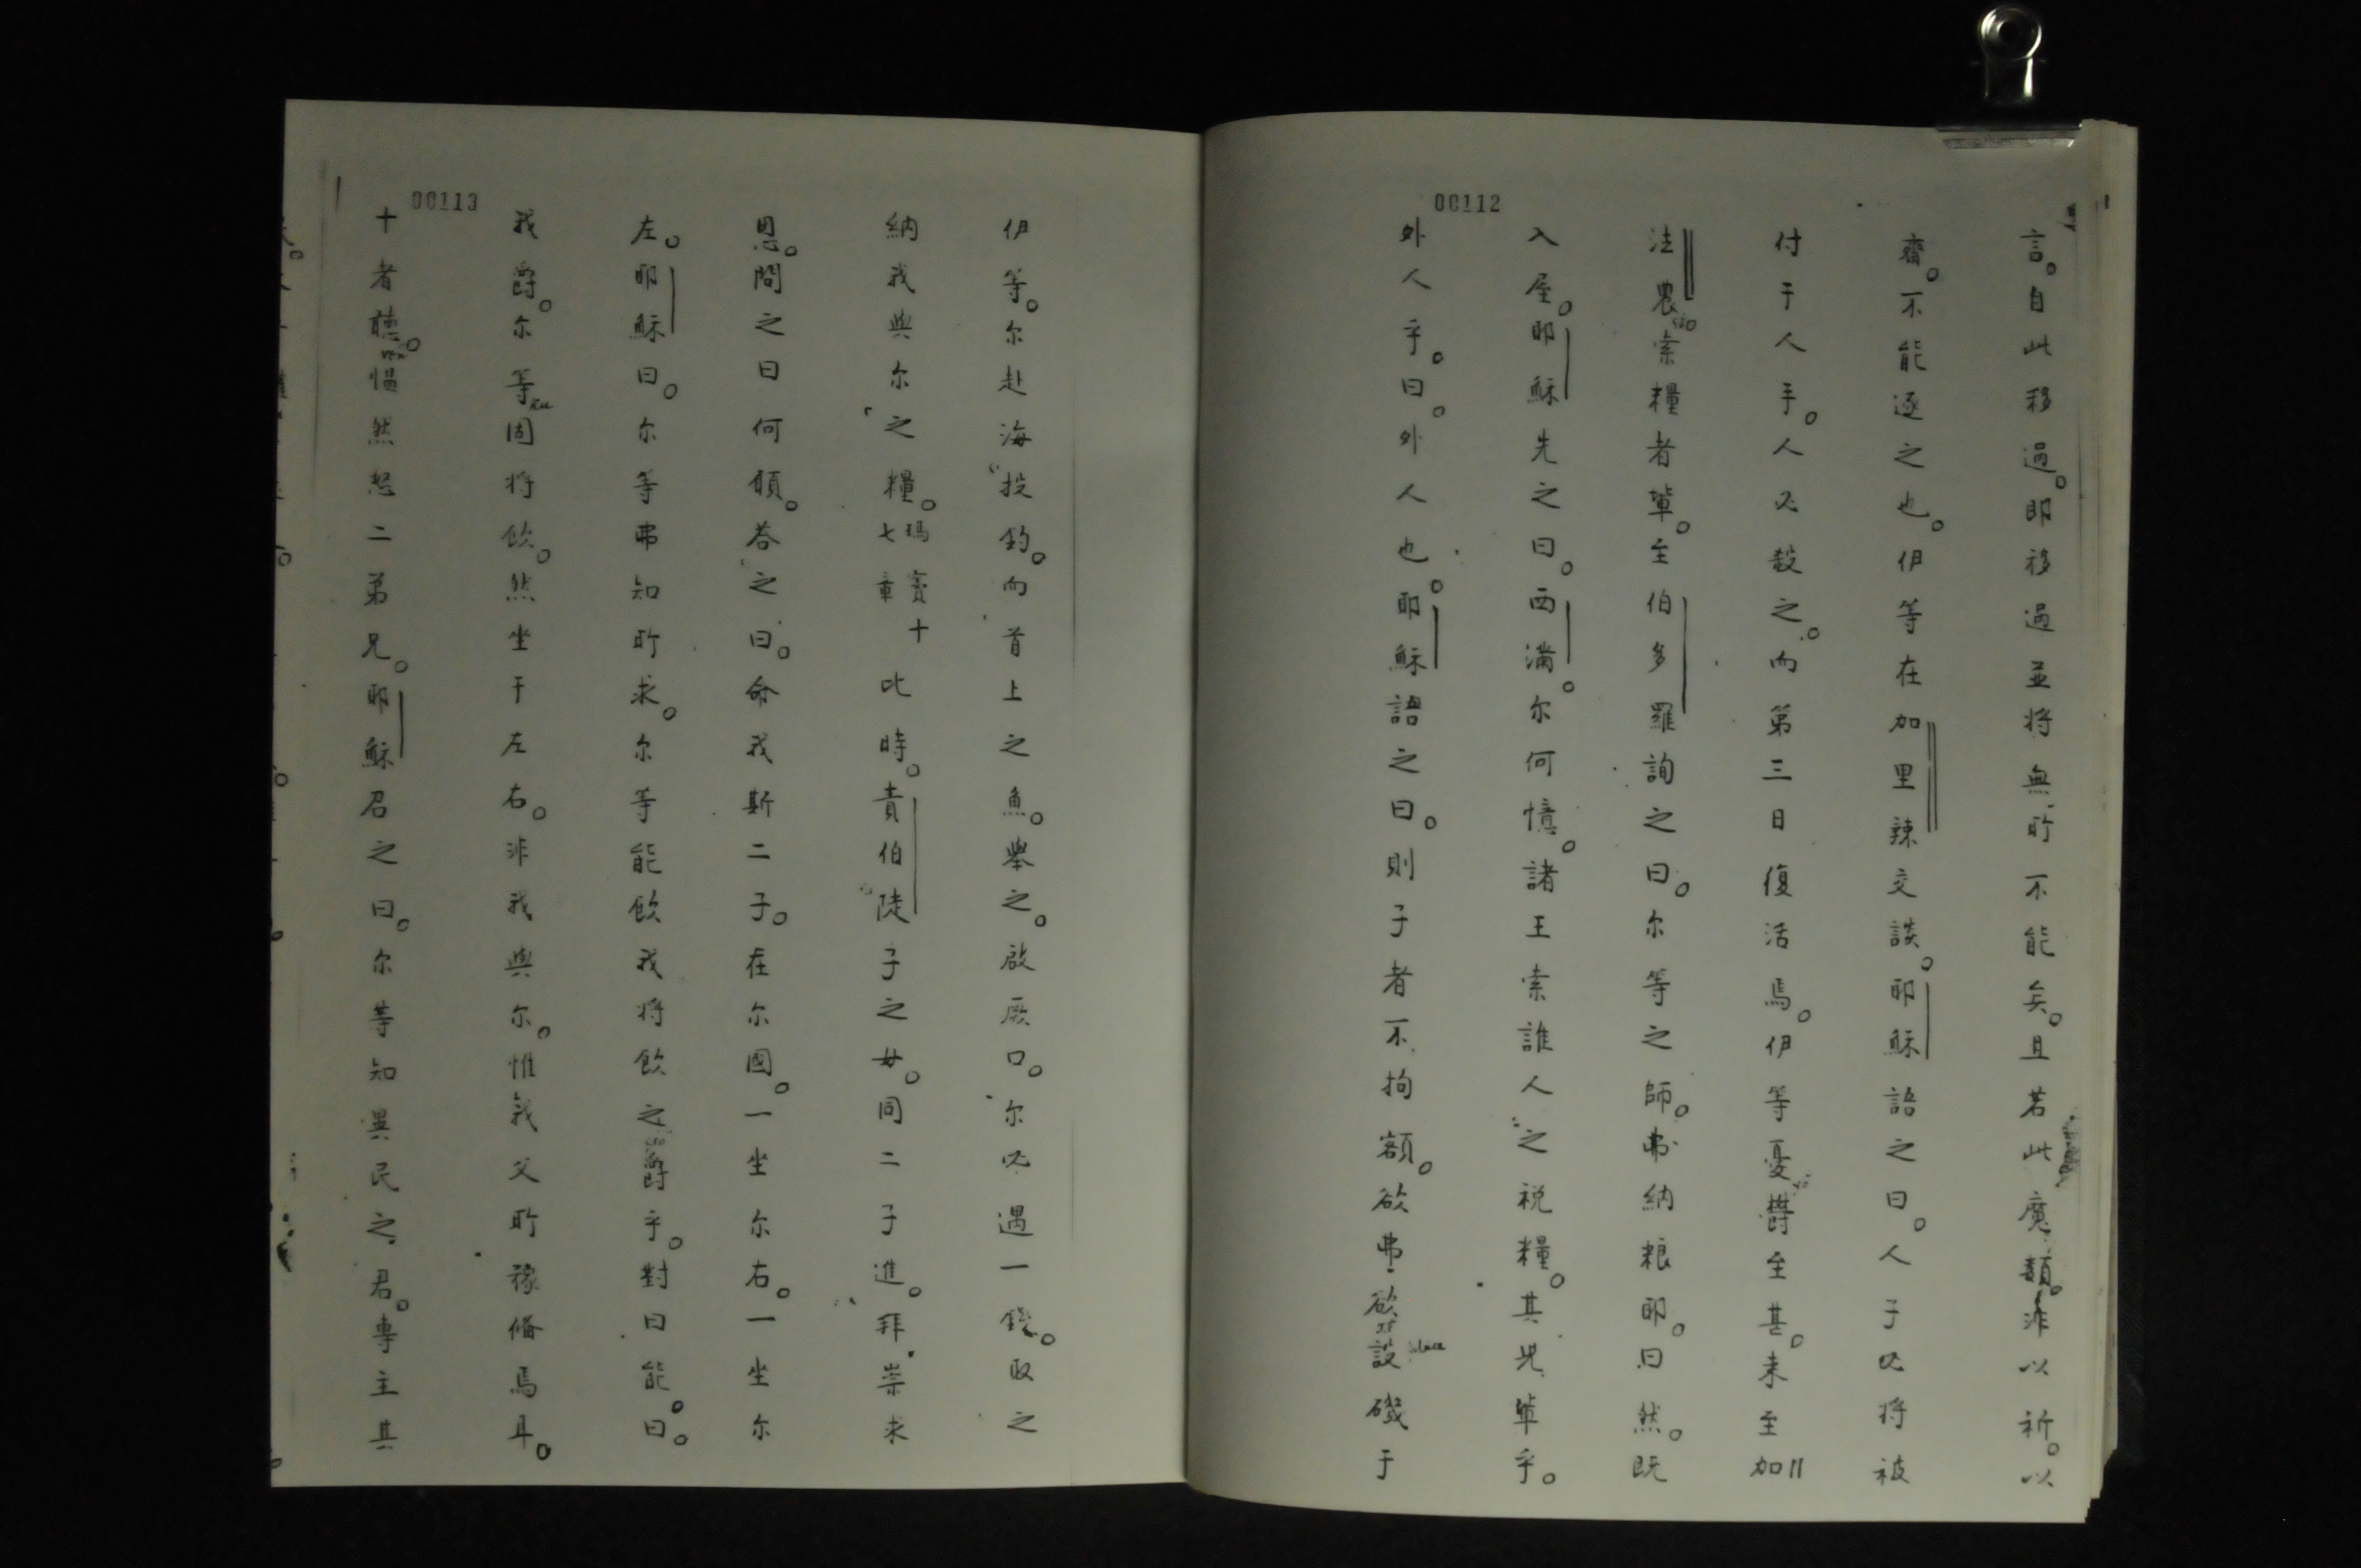 00112
言。自此移過。即移過並將無所不能矣。且若此魔類。非以祈。以
齋。不能逐之也。伊等在加里辣交談。耶穌語之曰。人子必將被
付于人手。人必殺之。而第三日復活焉。伊等憂欝至甚。未至加
法農索糧者輩。至伯多羅詢之曰。尔等之師。弗納粮耶。曰然。既
入屋。耶穌先之曰。西滿。尔何憶。諸王索誰人之税糧。其児輩乎。
外人乎。曰。外人也。耶穌語之曰。則子者不拘額。欲弗欲設磯于
00113
伊等。尔赴海投釣。而首上之魚。舉之。啟厥口。尔必遇一錢。取之
納我與尔之糧。瑪竇十七章 此時。責伯陡子之女。同二子進。拜崇求
恩。問之曰何願。荅之曰。命我斯二子。在尔國。一坐尔右。一坐尔
左。耶穌曰。尔等弗知所求。尔等能飲我將飲之爵乎。對曰能。曰。
我爵。尔等固將飲。然坐于左右。非我與尔。惟我父所豫偹焉耳。
十者聽。愠然怒二弟兄。耶穌召之曰。尔等知異民之君。專主其